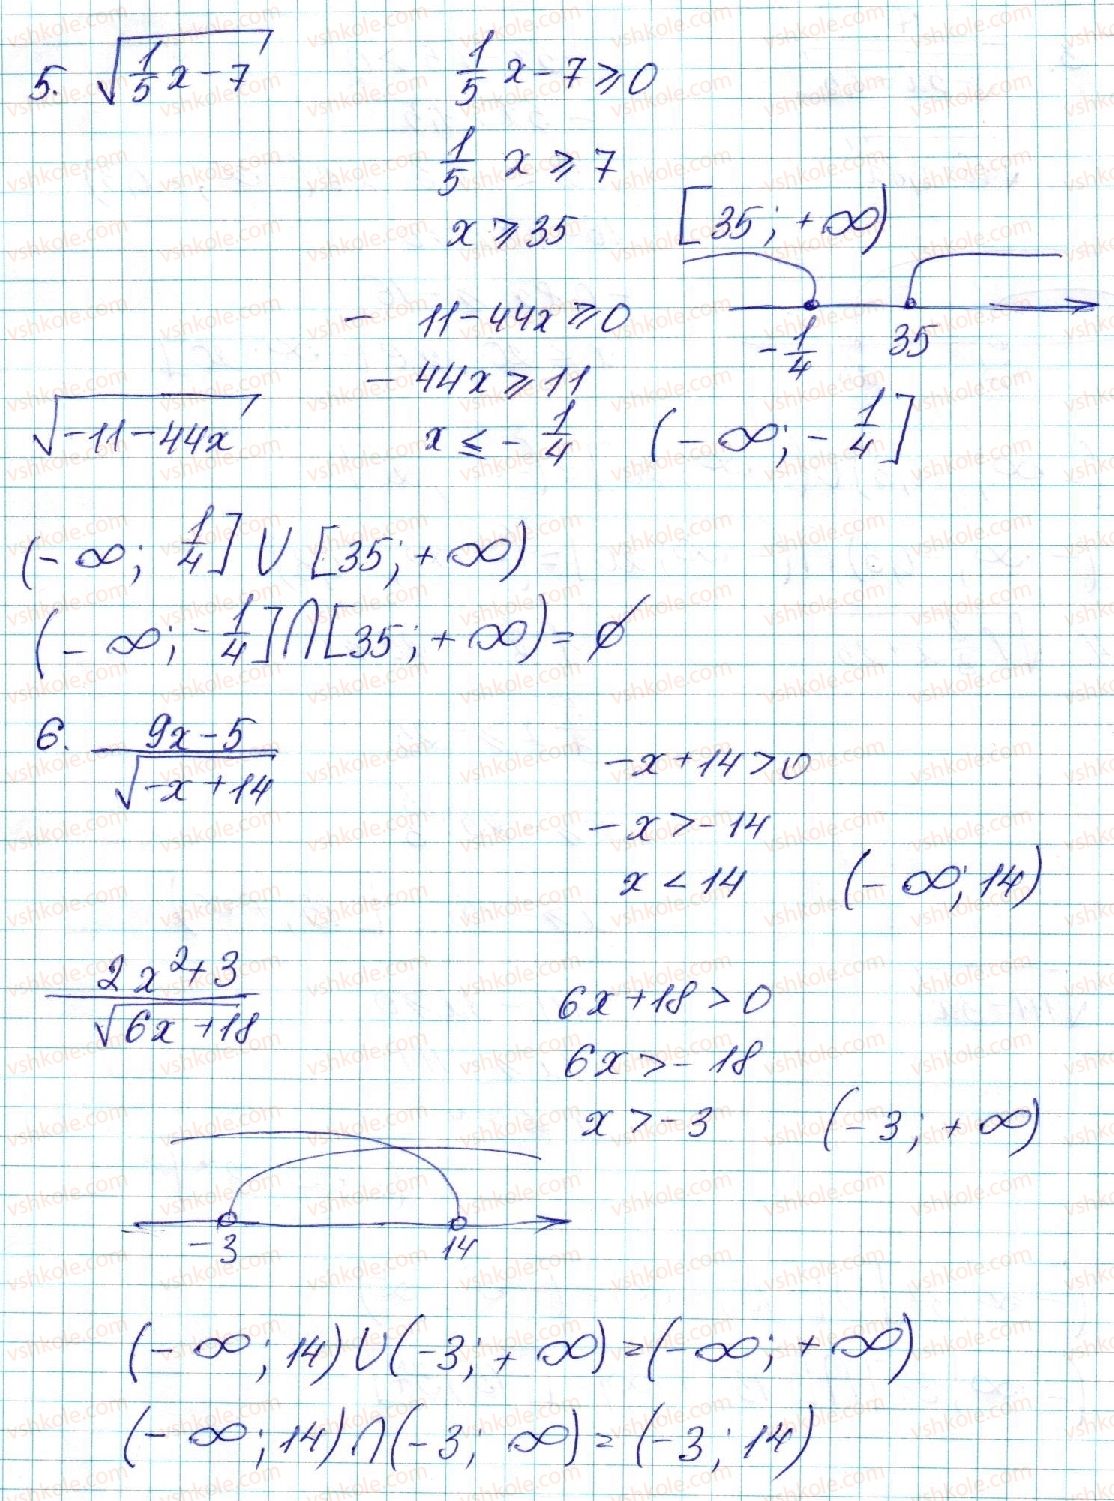 5. √(1/5 x - 7)
1/5 x - 7 ⩾ 0
1/5 x ⩾ 7
x ⩾ 35 [35; +∞)
-1/4 35
- 11 - 44x ⩾ 0
- 44x ⩾ 11
√(-11 - 44x)
x ≤ - 1/4 (-∞; - 1/4]
(-∞; 1/4] ∪ [35; +∞)
(-∞; -1/4] ∩ [35; +∞) = ∅
6. (9x - 5)/√(-x + 14)
-x + 14 > 0
-x > -14
x < 14 (-∞; 14)
(2x² + 3)/√(6x + 18)
6x + 18 > 0
6x > -18
x > -3 (-3; +∞)
-3 14
(-∞; 14) ∪ (-3; +∞) = (-∞; +∞)
(-∞; 14) ∩ (-3; ∞) = (-3; 14)
vshkole.com